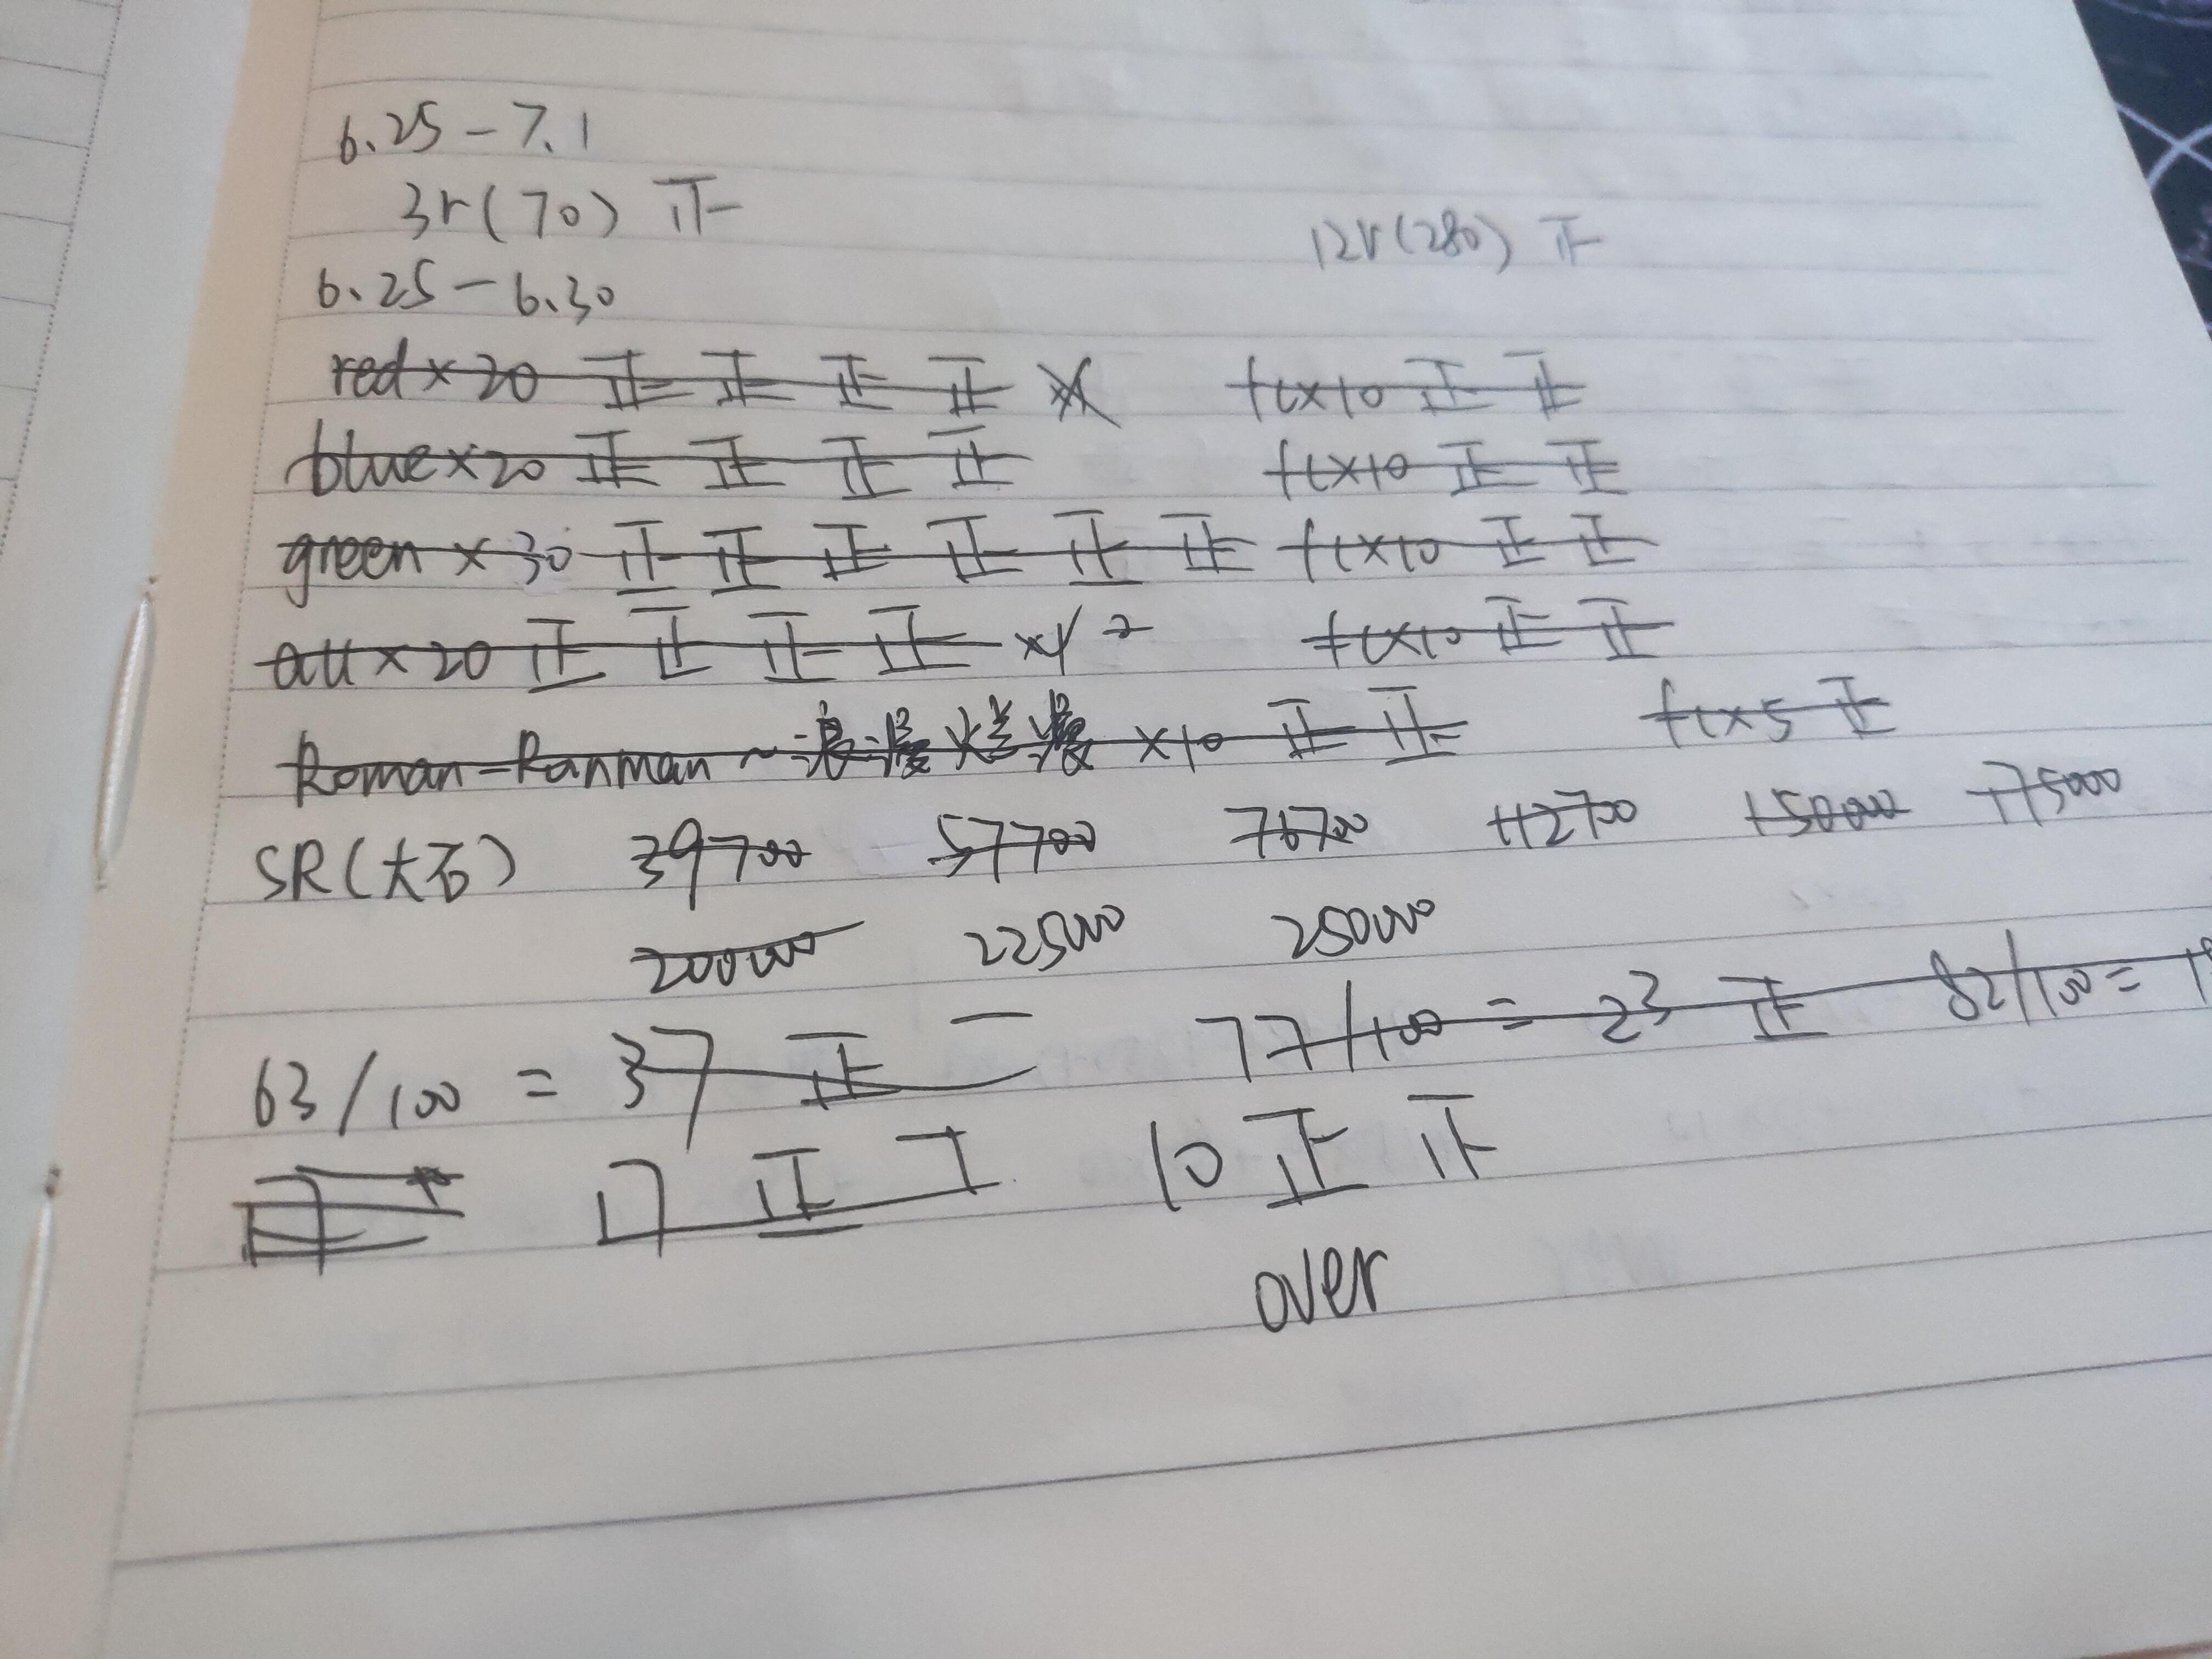 6.25-7.1
3r(70) 正 12r(280) 正
6.25-6.30
red×20 正 正 正 正 fc×10 正 正
blue×20 正 正 正 正 fc×10 正 正
green×30 正 正 正 正 正 正 fc×10 正 正
all×20 正 正 正 正 fc×10 正 正
Roman-Ranman~浪漫烂漫 ×10 正 正 fc×5 正
SR(大石) 39700 57700 76700 112700 150000 175000
200000 225000 250000
63/100 = 37 正 一 77/100 = 23 正 82/100=
17 正 10 正 正
over